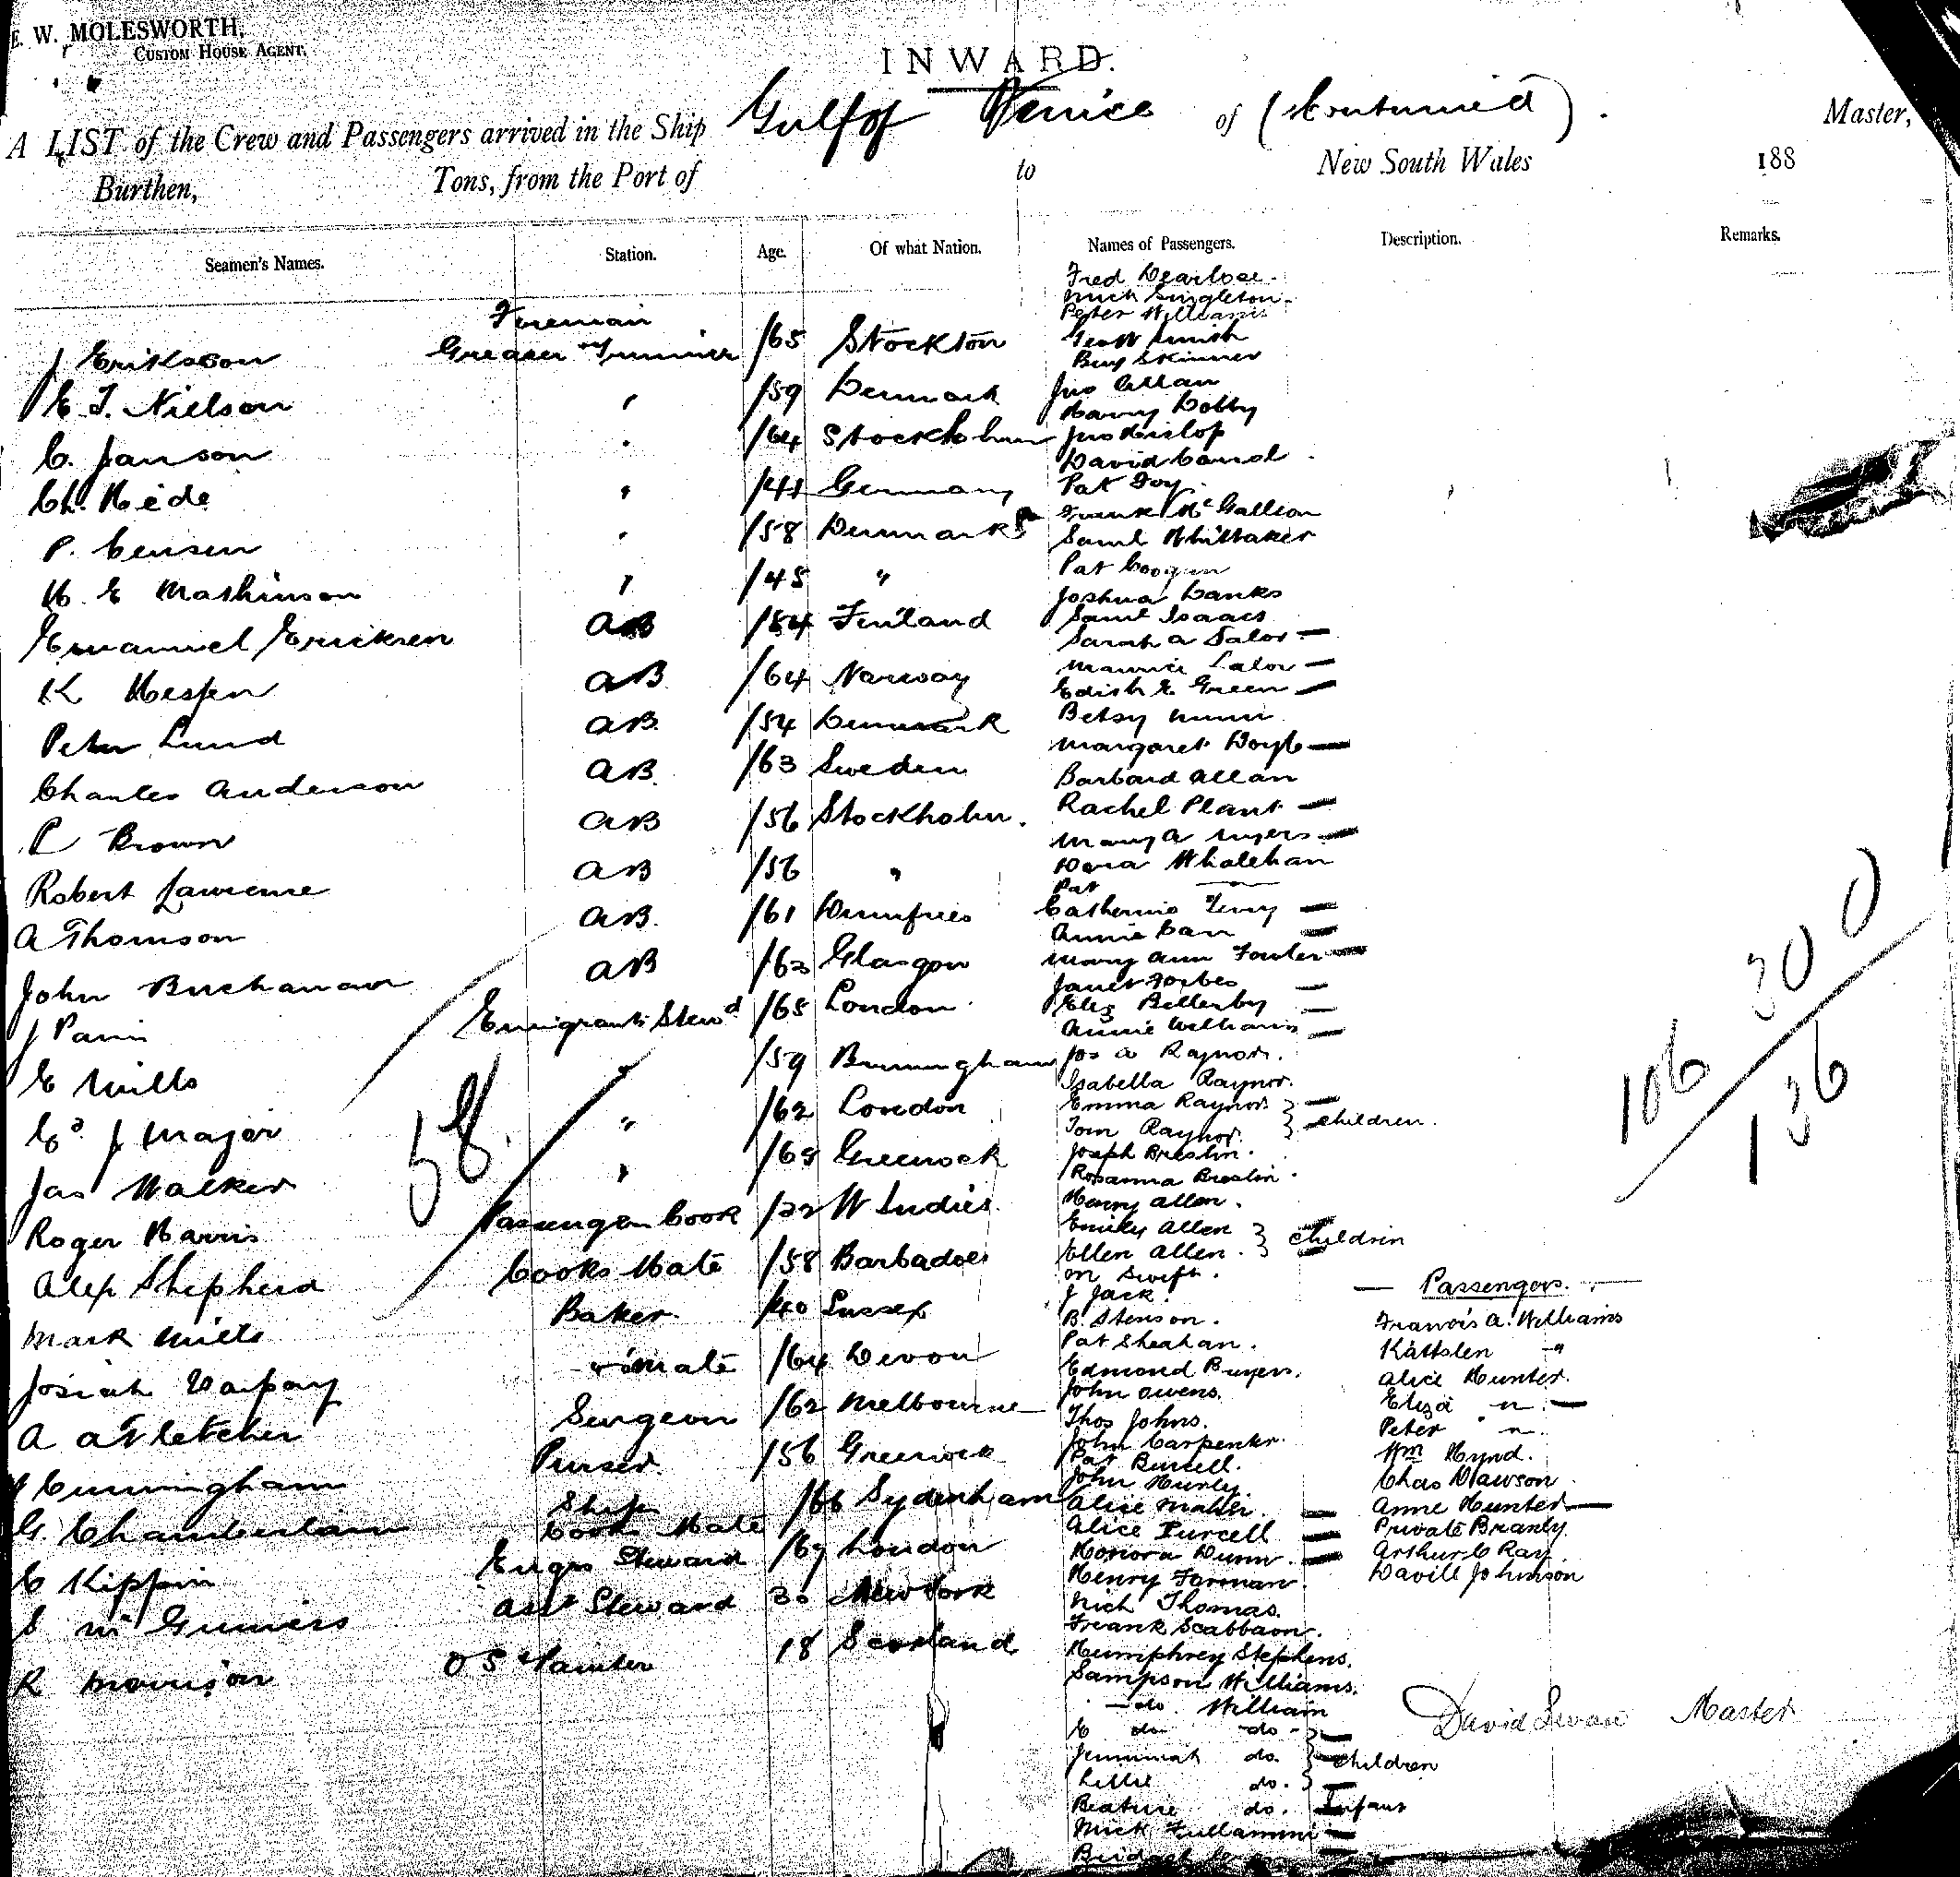 E. W. MOLESWORTH,
CUSTOM HOUSE AGENT.
INWARD.
A LIST of the Crew and Passengers arrived in the Ship Gulf of Venice of (Continued) Master,
Burthen, Tons, from the Port of to New South Wales 188
Seamen's Names. Station. Age. Of what Nation. Names of Passengers. Description. Remarks.
J Erikson Fireman Greaser Trimmer /65 Stockton
E. J. Nielson " /59 Denmark
C. Janson " /64 Stockholm
Ch. Hede " /41 Germany
P. Censen " /58 Denmark
H. E Mathinson " /45 "
Emanuel Eriksen AB /54 Finland
K Hespen AB /64 Norway
Peter Lund AB /54 Denmark
Charles Anderson AB /63 Sweden
P Brown AB /56 Stockholm.
Robert Lawrence AB /56 "
A Thomson AB. /61 Dumfries
John Buchanan AB /63 Glasgow
J Pann Emigrants Stewd /65 London
E Mills " /59 Birmingham
J Major " /62 London
Jas Walker " /69 Greenock
Roger Harris Passenger Cook /22 W Indies.
Alex Shepherd Cooks Mate /58 Barbadoes
Mark Mills Baker /40 Sussex
Josiah Mate /64 Devon
A A Fletcher Surgeon /62 Melbourne
Cunningham Purser /56 Greenock
G. Chamberlain Ships Cooks Mate /66 Sydenham
C Kippin Engrs Steward /67 London
S Asst Steward 30 New York
R Morrison OS & Painter 18 Scotland
58.
Fred Dearlove.
Mick Singleton.
Peter Williams
Geo W Smith
Benj Skinner
Jno Allan
Harry Dobby
Jno Hislop
David Carrol
Pat Foy.
Frank McGallion
Saml Whittaker
Pat Coogan
Joshua Banks
Saml Isaacs
Sarah A Lalor —
Maurice Lalor —
Edith E Green —
Betsy Nunn
Margaret Doyle —
Barbara Allan
Rachel Plant —
Mary A Myers —
Dora Whalehan
Pat "
Catherine Terry —
Annie Carr —
Mary Ann Fowler —
Janet Forbes —
Eliz Bellerby —
Annie Williams —
Jos A Raynor.
Isabella Raynor.
Emma Raynor. —
Tom Raynor. } children.
Joseph Breslin.
Rosanna Breslin.
Henry Allen.
Emily Allen
Ellen Allen. } children
M Swift.
J Jack.
B. Stenson.
Pat Sheahan.
Edmond Buyers.
John Owens.
Thos Johns.
John Carpenter.
Pat Purcell.
John Hurly.
Alice Maher —
Alice Purcell —
Honora Dunn. —
Henry Farman.
Nich Thomas.
Frank Scabbaon.
Humphrey Stephens.
Sampson Williams.
— do. William
E do do —
Jemimah do. } children
Lillie do.
Beatrice do. Infant
Mick Fullammi —
— Passengers. —
Francis A. Williams
Kattslen "
Alice Hunter.
Eliza " —
Peter "
Wm Hynd.
Chas Dawson
Anne Hunter —
Private Branly.
Arthur C Ray.
Davill Johnson
106
30
0
136
David Swan Master